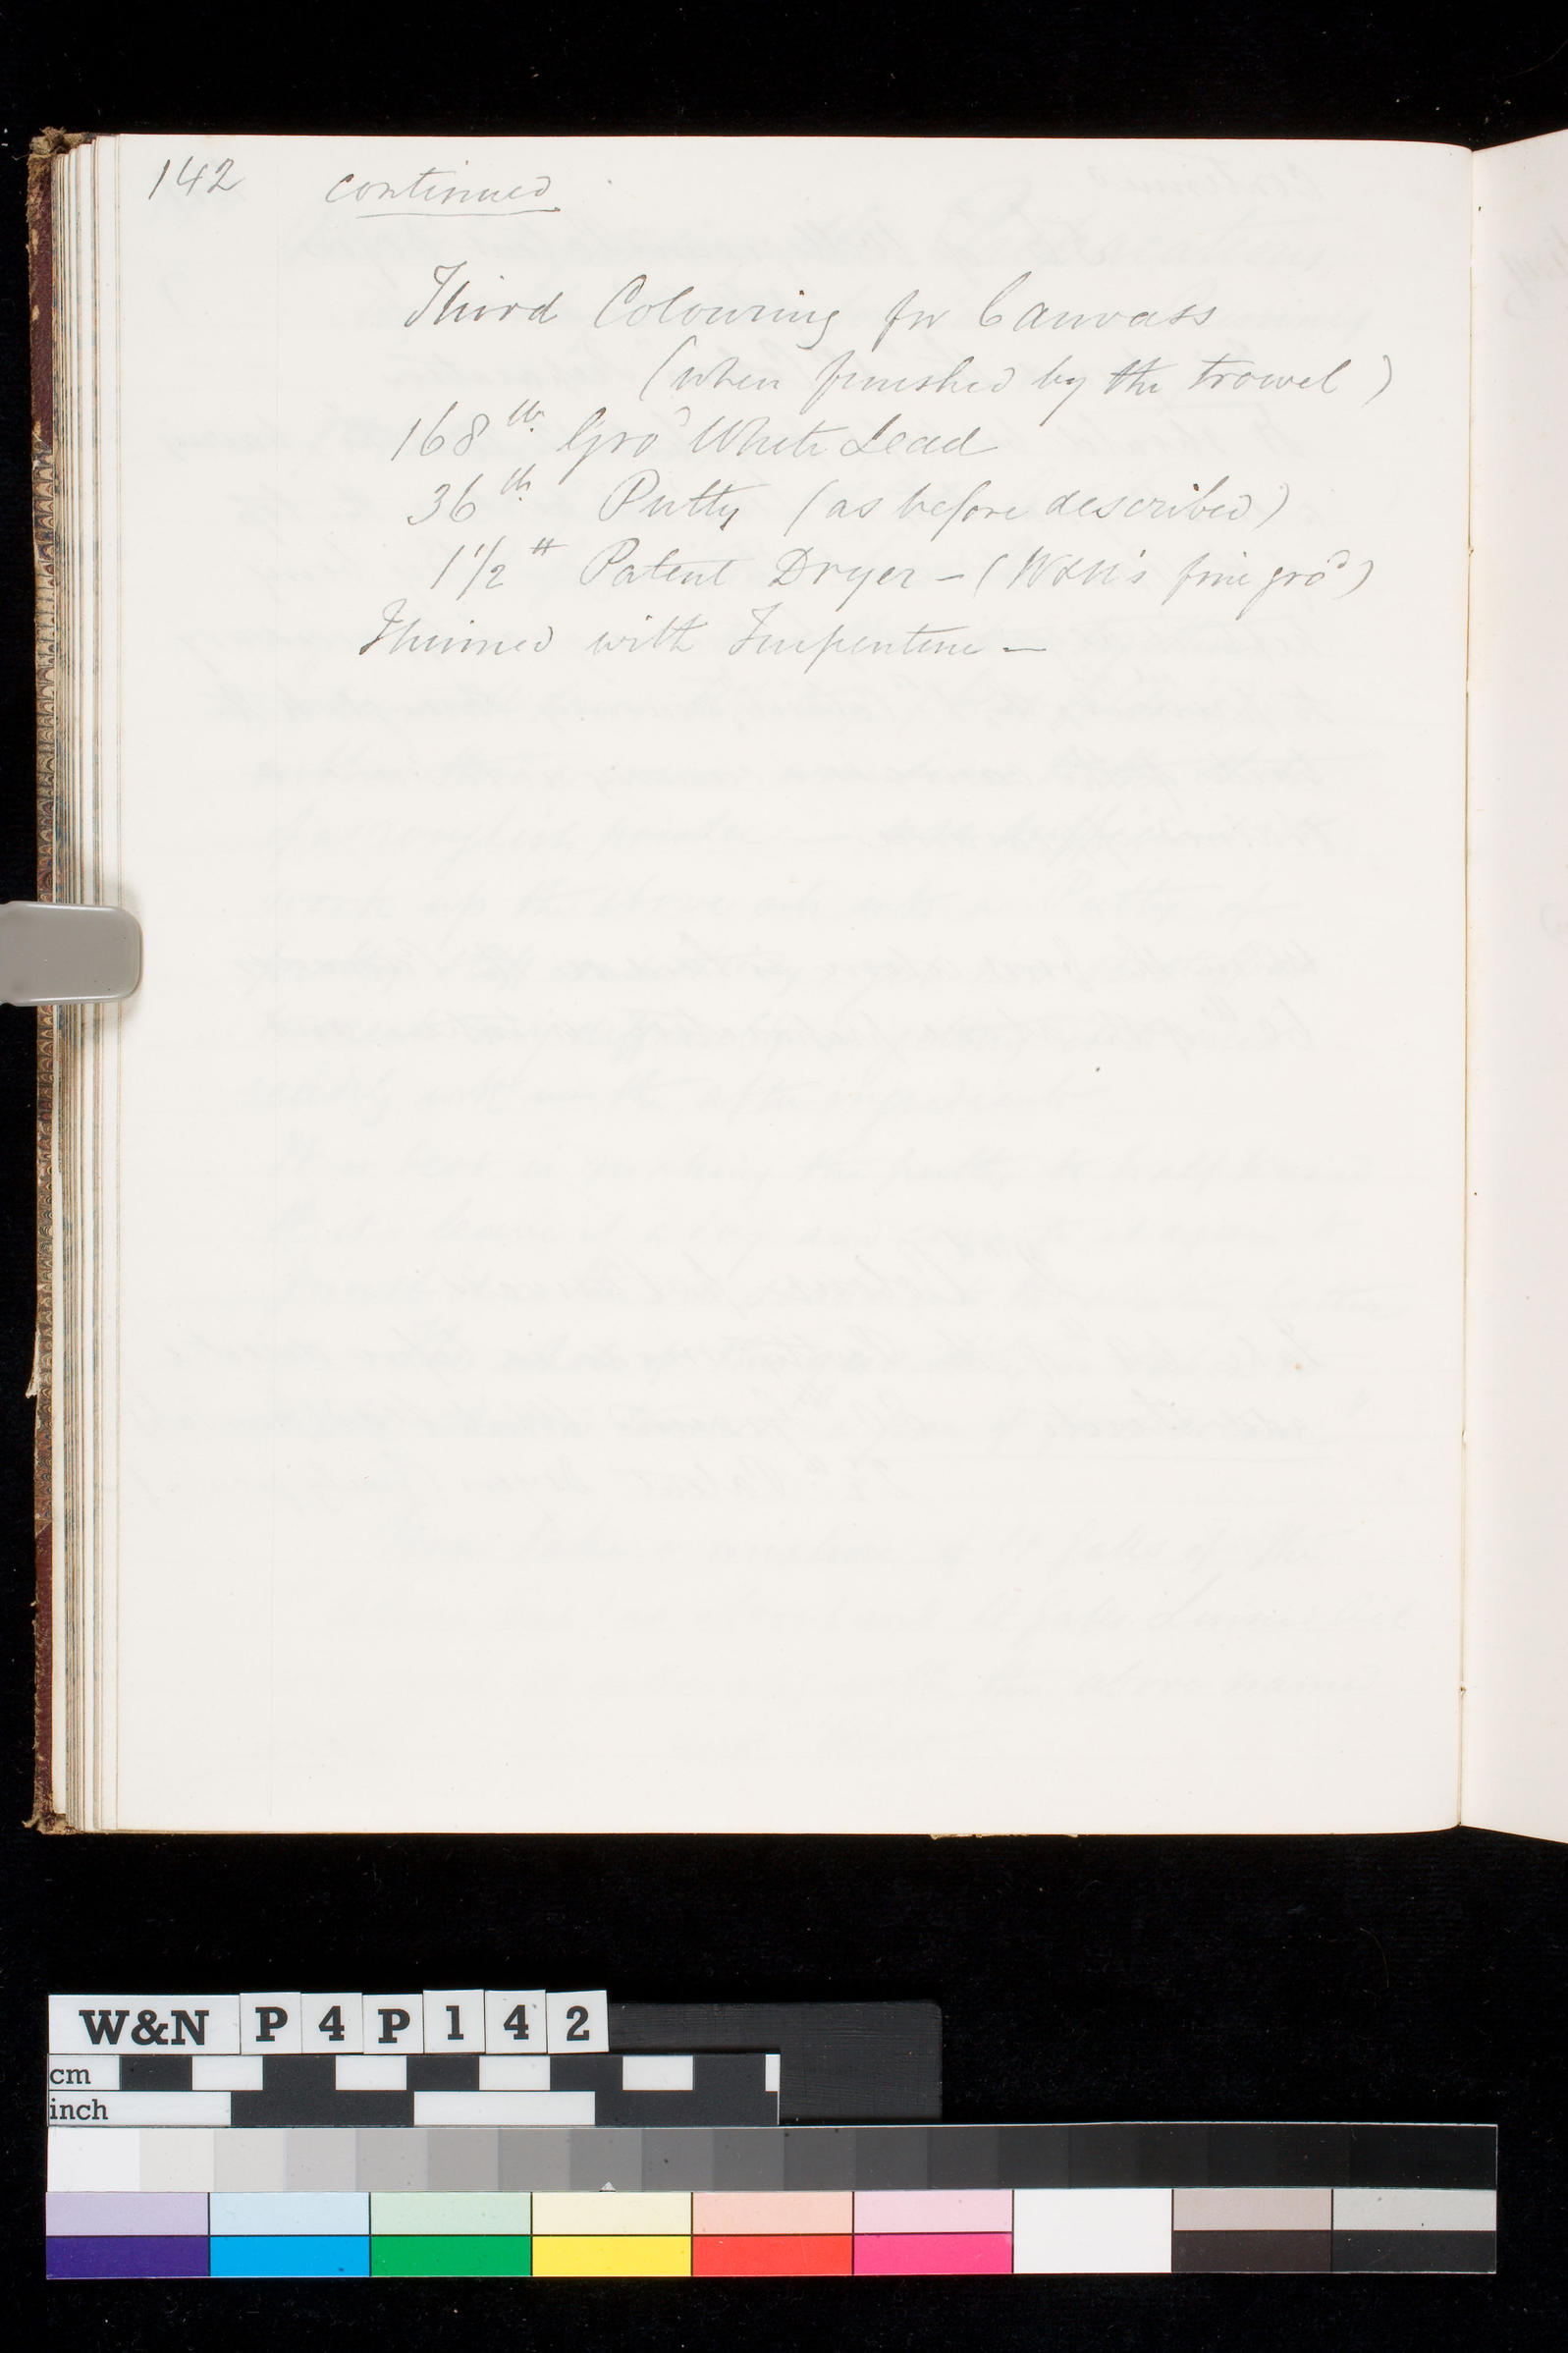 142 continued
Third Colouring for Canvass
(when finished by the trowel)
168 lb. Gro^d White Lead
36 lb. Putty (as before described)
1 1/2 # Patent Dryer – (W&N's fine gro^d)
Thinned with Turpentine –
W&N P4P142
cm
inch